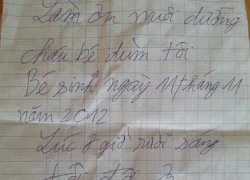 Làm ơn nuôi dưỡng
cháu bé dùm tôi
Bé sinh ngày 11/tháng 11
năm 2012
Lúc 8 giờ rưỡi sáng
tôi